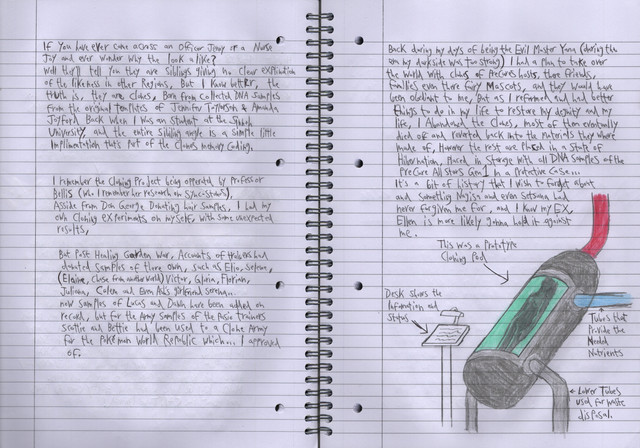 If you have ever came across an Officer Jenny or a Nurse
Joy and ever wonder why the look alike?
Well they'll tell you they are siblings giving no clear explination
of the likeness in other Regions, But I know better, the
truth is, they are clones, Born from collected DNA samples
from the original templets of Jennifer & Amanda
Joyford Back when I was an student at the
University, and the entire sibling angle is a simple little
implimentation that's part of the clones memory coding.
I remember the cloning Project being operated by Professor
Bellis (who I remember her research on Sync-Stones).
Asside from Don George Donating hair samples, I had my
own cloning experiments on myself, with some unexpected
results,
But Post Healing Garden War, Accounts of trainers had
donated samples of there own, such as Elio, Selene,
(Elaine, Chase from another world) Victor, Gloria, Florian,
Juliana, Calem and even Ash's girlfriend Serena...
now samples of Lucas and Dawn have been added on
record, but for the Army samples of the basic trainers
Scottie and Bettie had been used to a Clone Army
for the Pokémon World Republic which... I approved
of.
Back during my days of being the Evil Master Yama (during the
era my darkside was too strong) I had a Plan to take over
the World with clones of Precures hosts, there friends,
families even there fairy Mascots, and they would have
been obedient to me, But as I reformed and had better
things to do in my life to restore my dignity and my
life, I Abandoned the Clones, most of them eventually
died off and reverted back into the materials they where
made of, However the rest are placed in a state of
Hibernation, Placed in Storage with all DNA samples of the
PreCure All Stars Gen 1 in a Protective Case...
It's a bit of history that I wish to forget about
and something Nagisa and even Setsuna had
never forgiven me for, and I know my EX,
Ellen is more likely gonna hold it against
me.
This was a Prototype
Cloning Pod
Desk shows the
Infomation and
Status
Tubes that
Provide the
Needed
Nutrients
← Lower Tubes
used for waste
disposal.